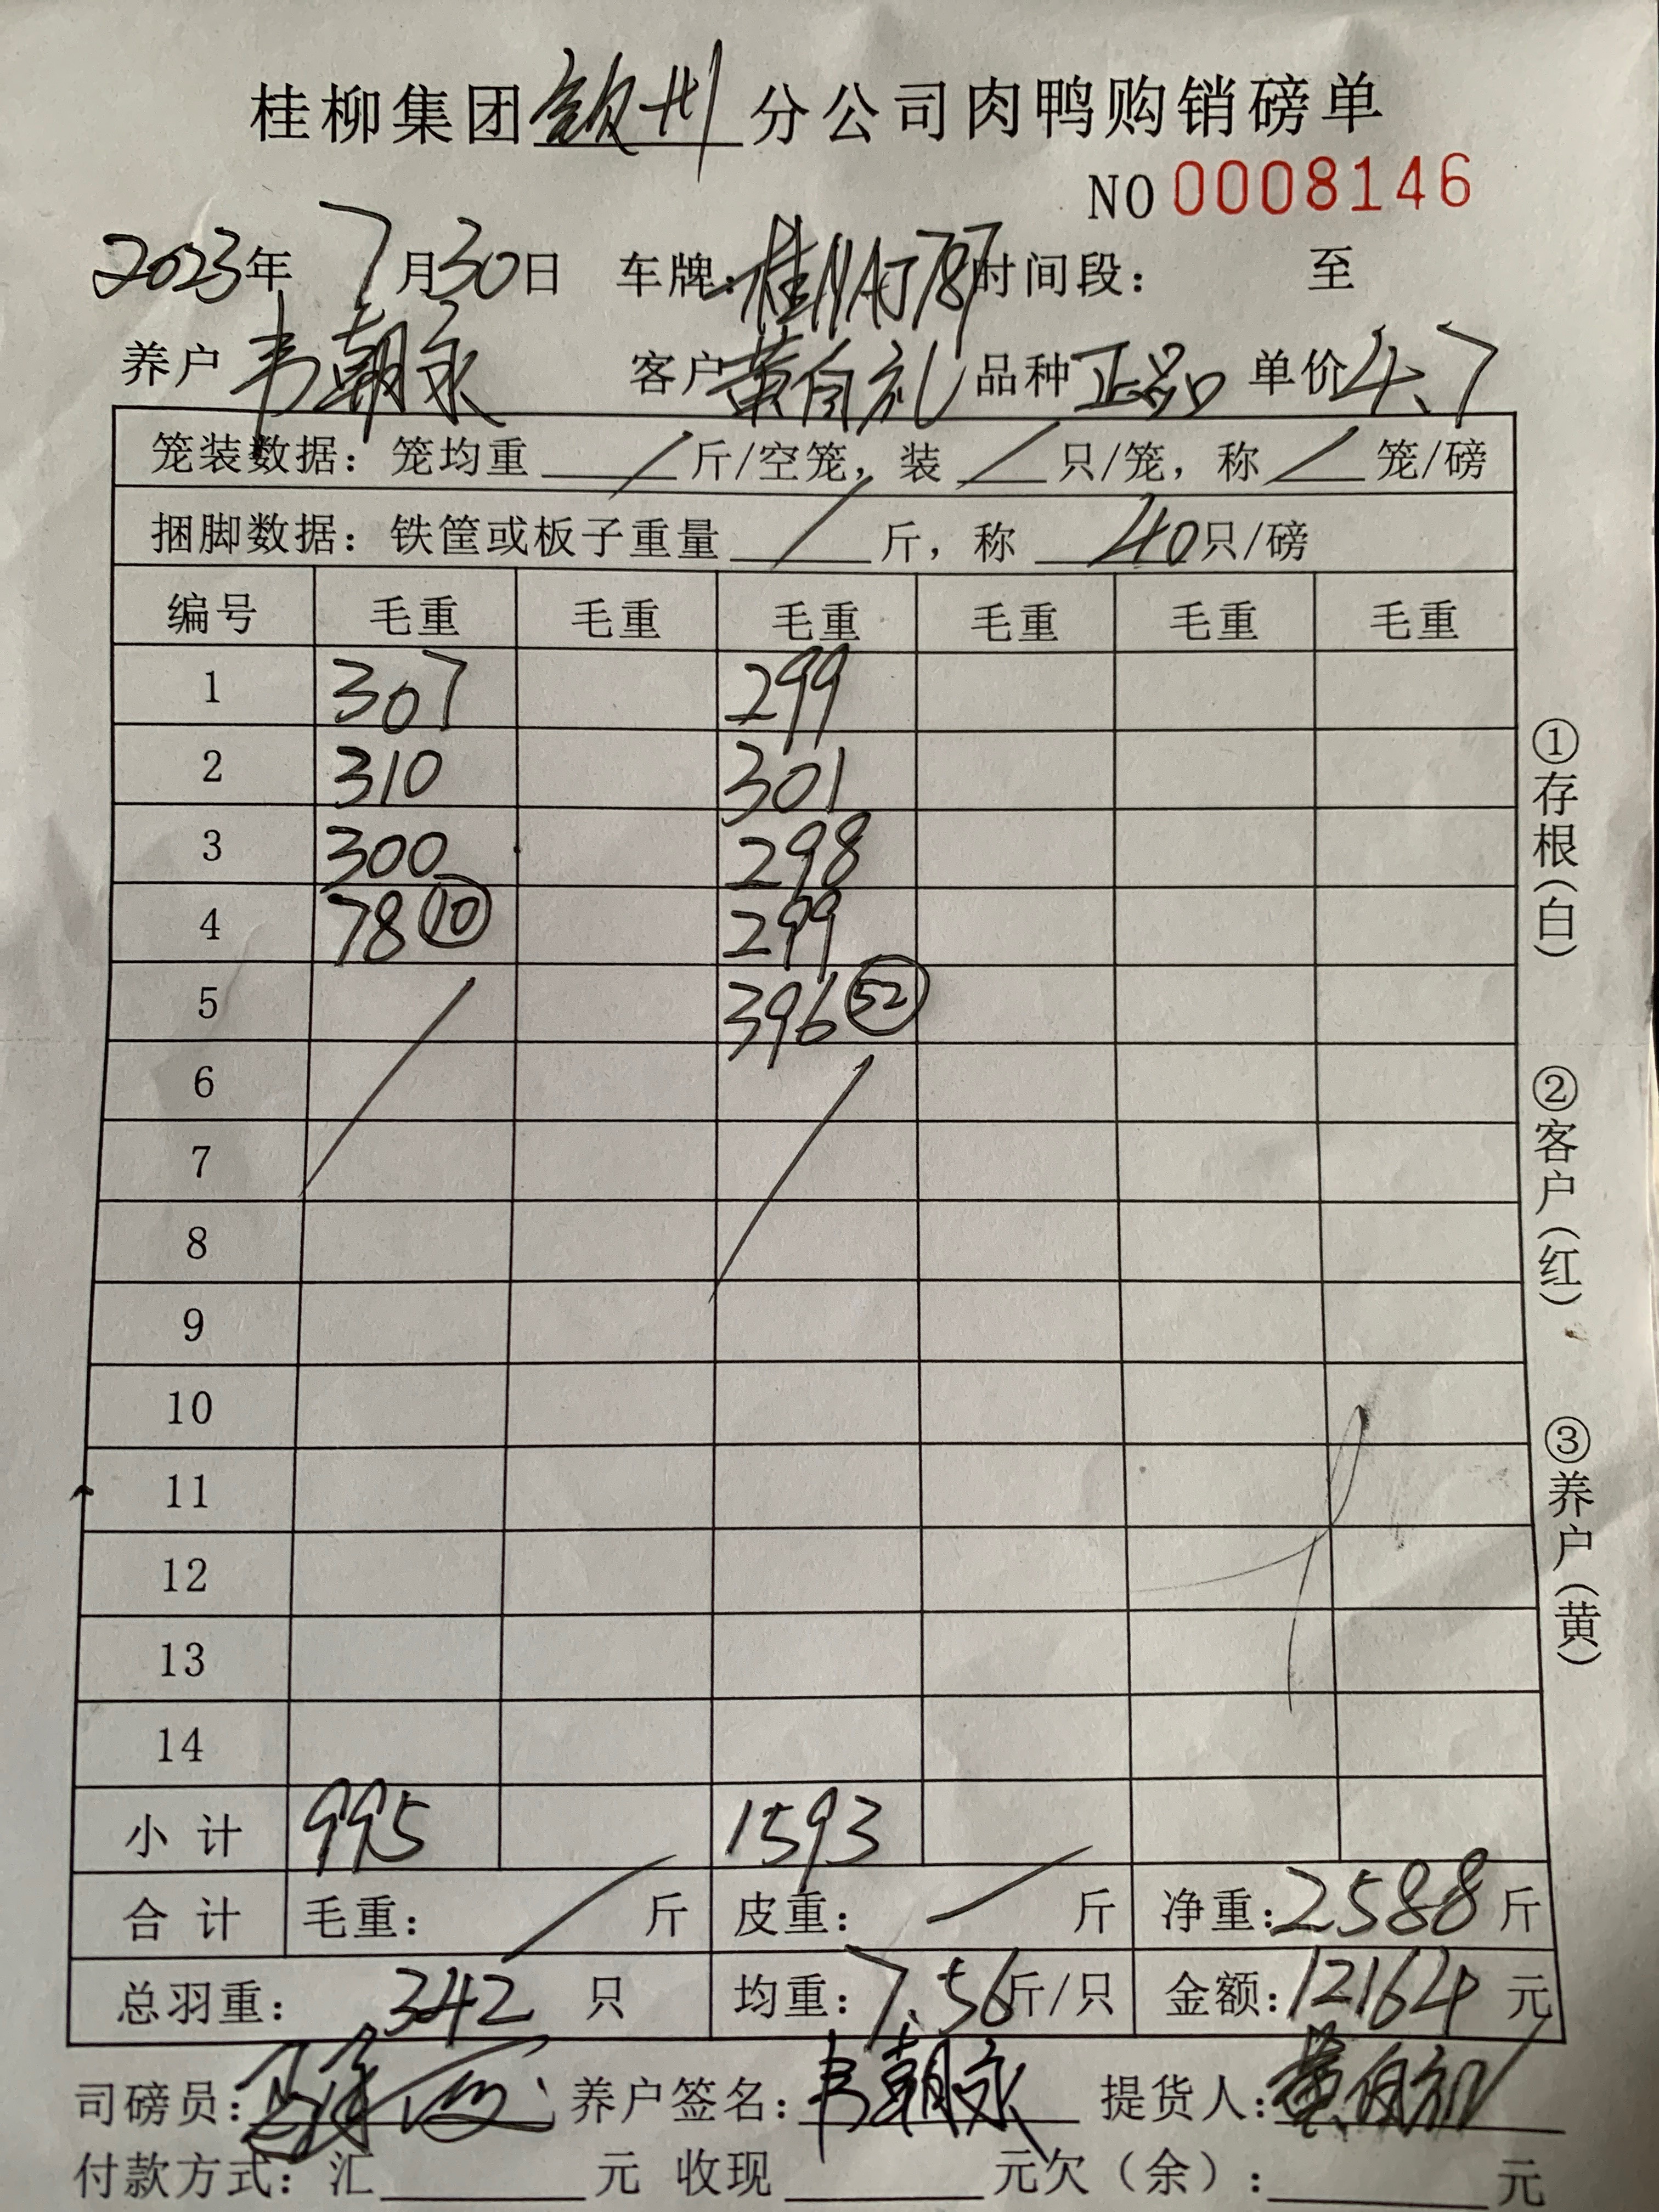 桂柳集团钦州分公司肉鸭购销磅单
NO 0008146
2023年 7月30日 车牌:桂NAJ787时间段: 至
养户 韦朝永 客户 黄自礼 品种 正品 单价 4.7
笼装数据:笼均重 / 斤/空笼,装 / 只/笼,称 / 笼/磅
捆脚数据:铁筐或板子重量 / 斤,称 40只/磅
编号 毛重 毛重 毛重 毛重 毛重 毛重
1 307 299
2 310 301
3 300 298
4 78 ⑩ 299
5 396 52
6
7
8
9
10
11
12
13
14
小计 995 1593
合计 毛重: / 斤 皮重: / 斤 净重:2588斤
总羽重: 342 只 均重:7.56斤/只 金额:12164 元
司磅员: 养户签名:韦朝永 提货人:黄自礼
付款方式:汇 元 收现 元欠(余): 元
①存根(白)
②客户(红)
③养户(黄)